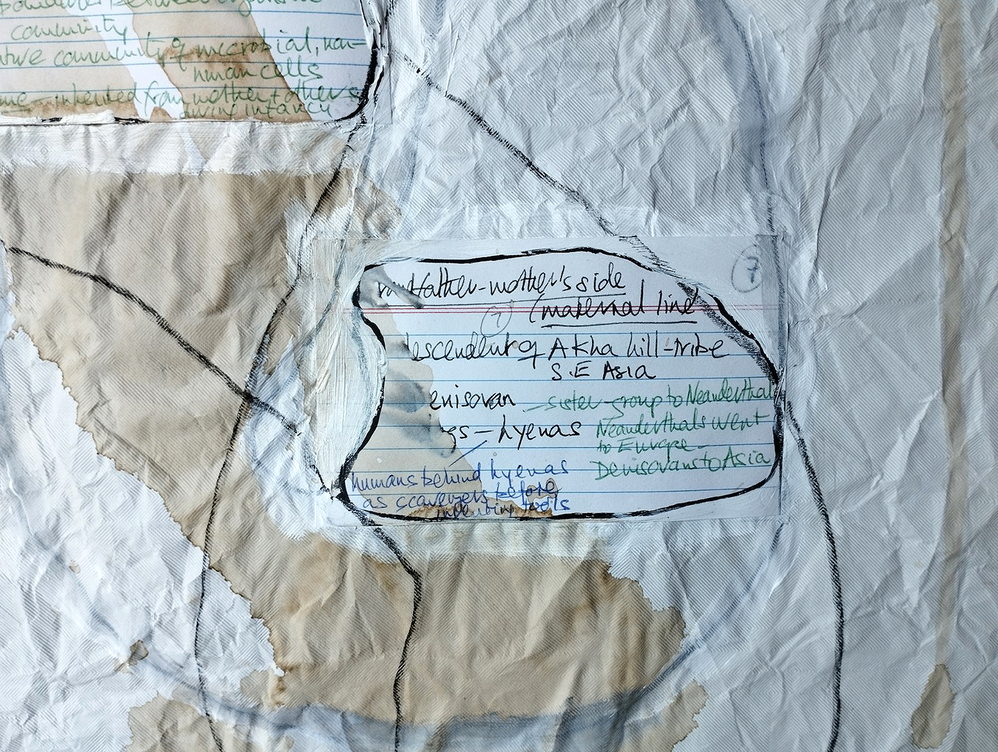 community
community of microbial, non-
human cells
inherited from mother + others
during infancy
7
father-mother's side
(maternal line
7
descendent of Akha hill-tribe
S.E Asia
enisovan – sister-group to Neanderthal
gs – hyenas Neanderthals went
to Europe –
Denisovans to Asia
humans behind hyenas
as scavengers before
inventing tools